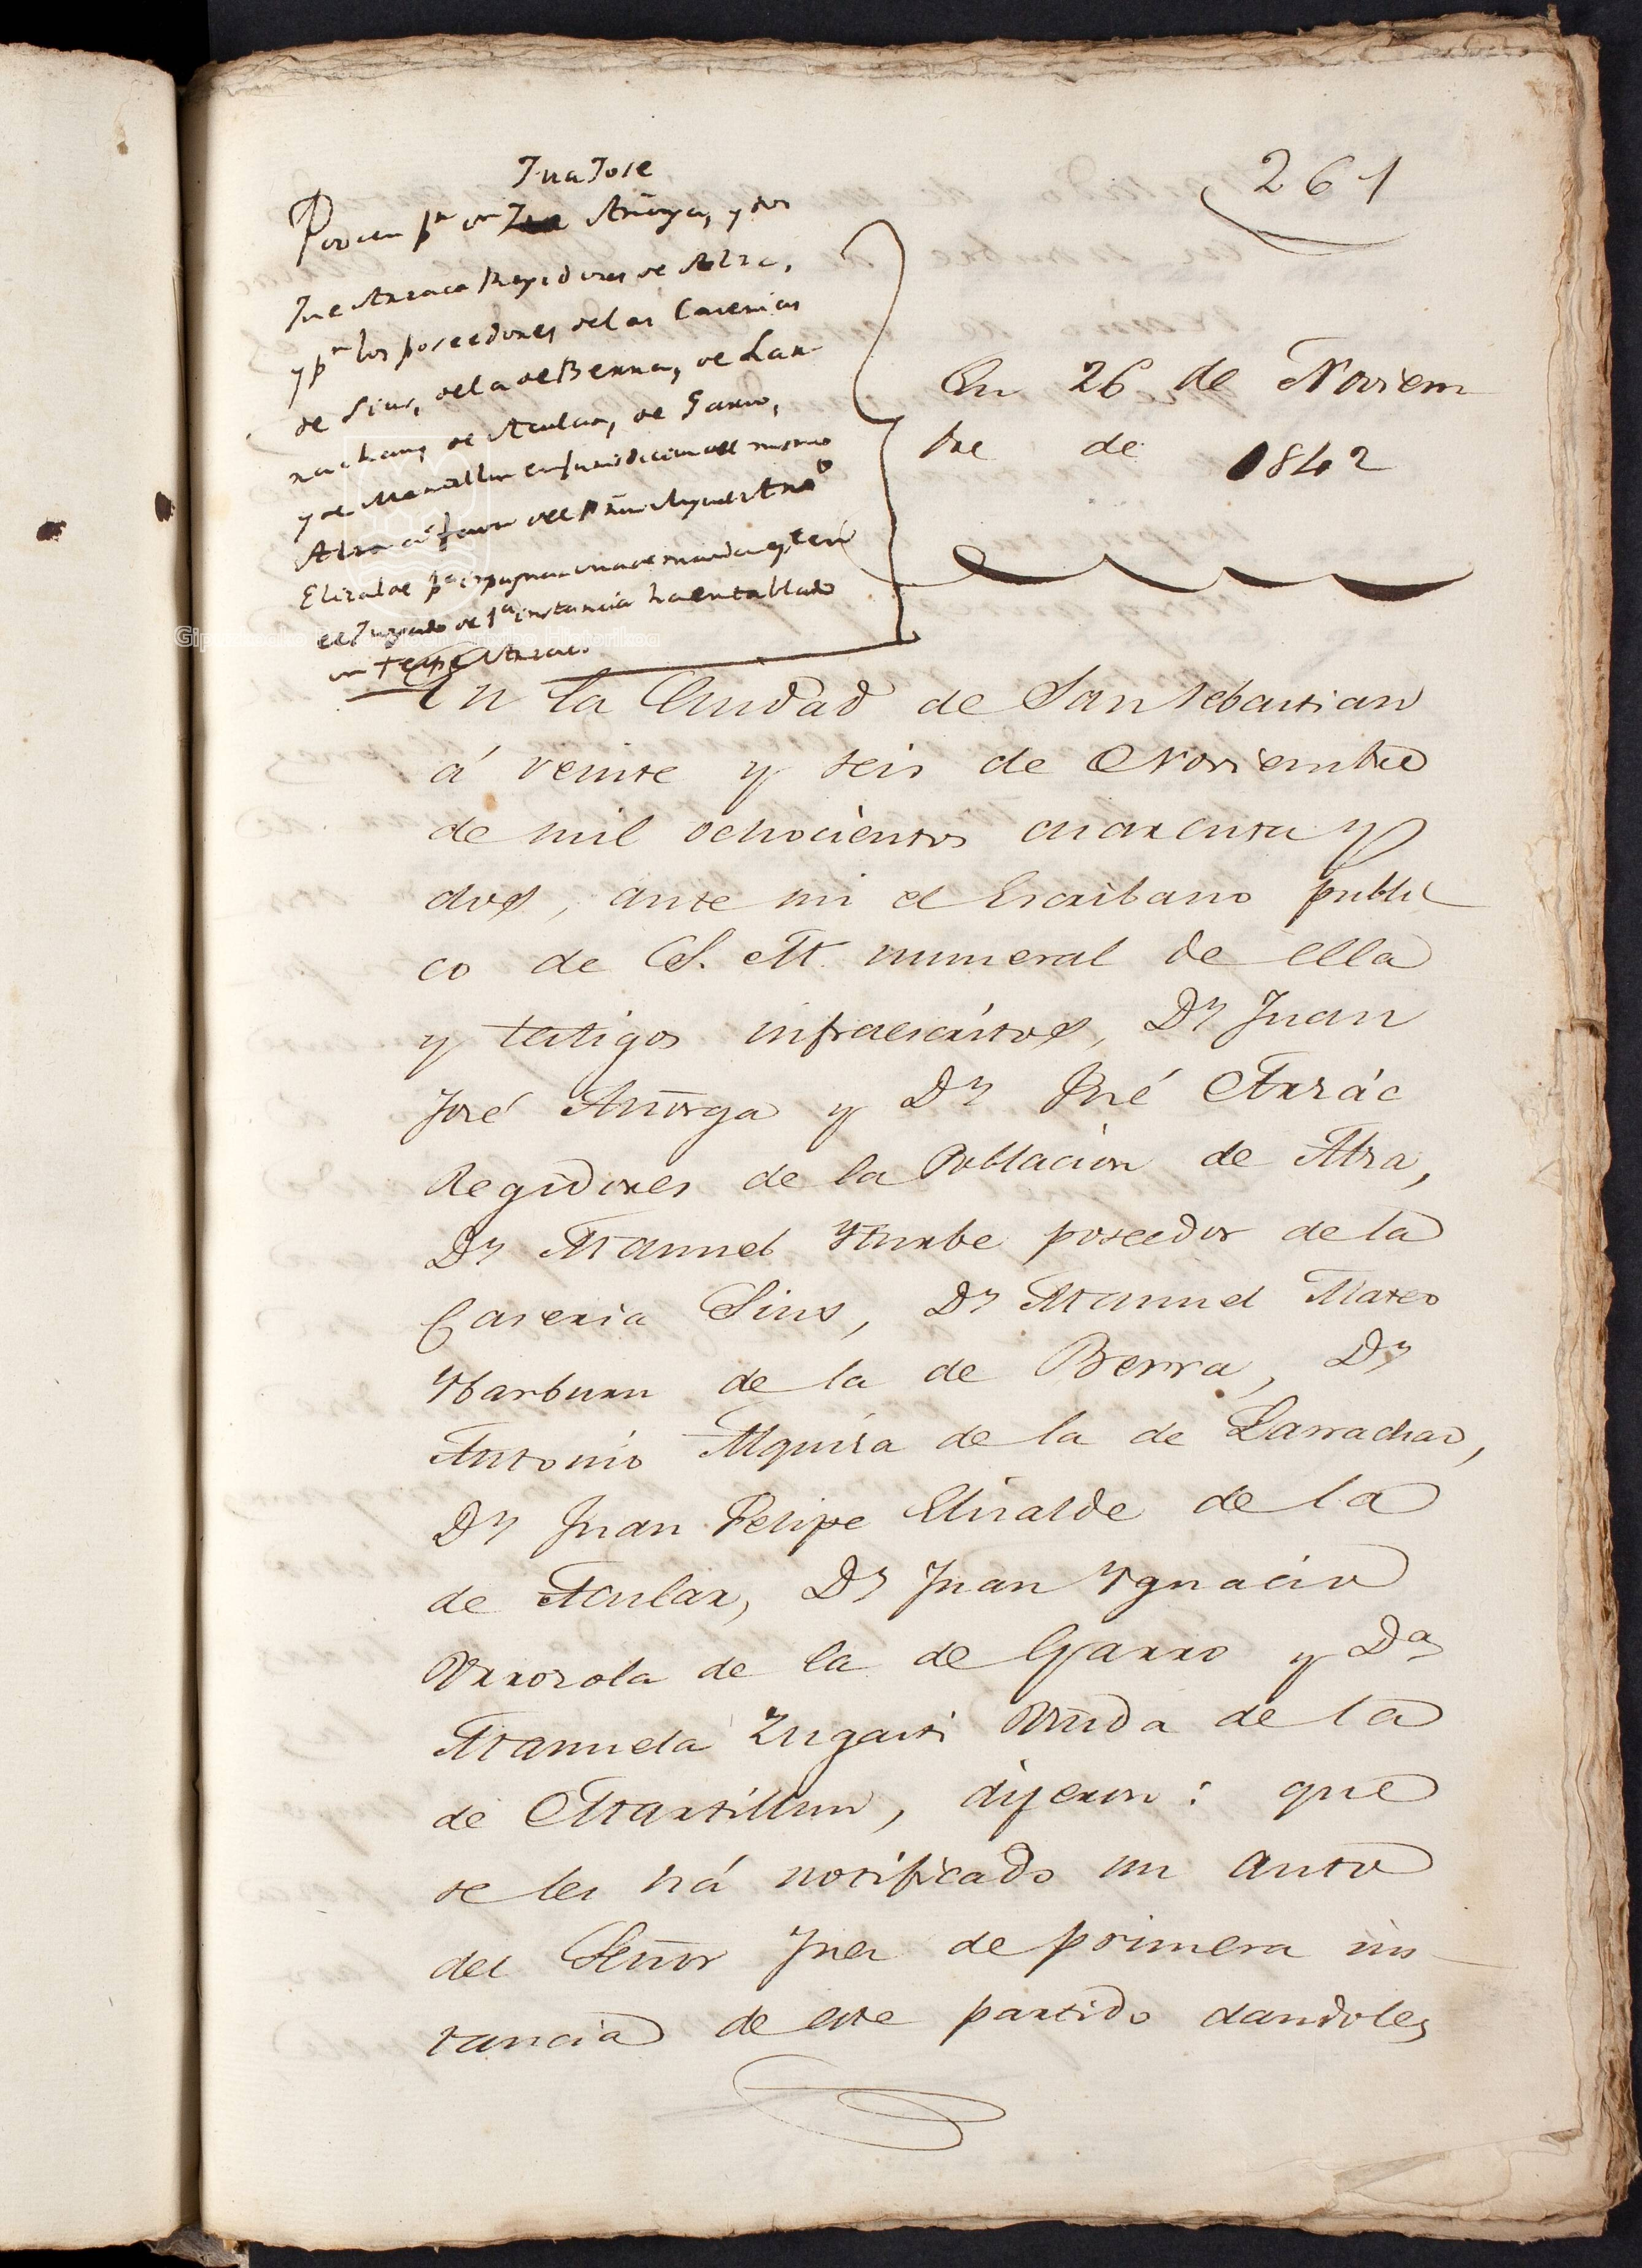 261
Jua José
Poder pr dn Añorga, y don
José Arzac Regidores de Alza,
y pr los poseedores de las Caserias
de Sius, de la de Berra, de Lar
rachau, de Acular, de Garro,
y de Martillun en jurisdiccion del mismo
Alza á favor del Prior Miguel Anto
Elizalde pa impugnar una demanda q. en
el Juzgado de 1a instancia ha entablado
dn Felipe Arzac.
En 26 de Noviem
bre de 1842
En la Ciudad de San Sebastian
á veinte y seis de Noviembre
de mil ochocientos cuarenta y
dos, ante mi el Escribano publi
co de S. M. numeral de ella
y testigos infraescritos, Dn Juan
José Añorga y Dn José Arzác
Regidores de la Poblacion de Alza,
Dn Manuel Yturbe poseedor de la
Caseria Sius, Dn Manuel Mateo
Ybarburu de la de Berra, Dn
Antonio Alquiza de la de Larrachao,
Dn Juan Felipe Elizalde de la
de Acular, Dn Juan Ygnacio
Urrozola de la de Garro y Da
Manuela Zugasti Viuda de la
de Martillun, dijeron: que
se les há notificado un auto
del Señor Juez de primera ins
tancia de este partido dandoles
Gipuzkoako Protokoloen Artxibo Historikoa